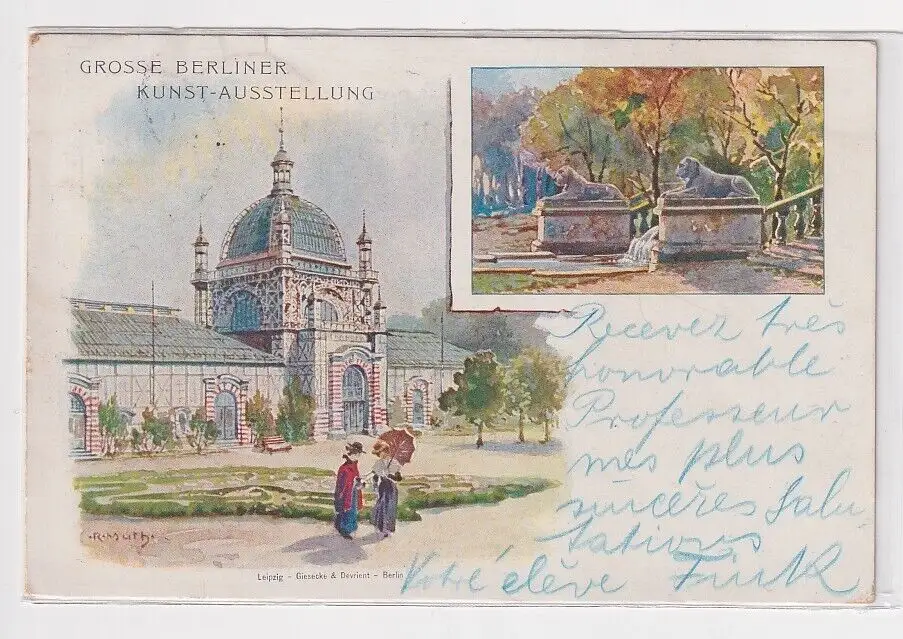 GROSSE BERLINER
KUNST-AUSSTELLUNG
Recevez très
honorable
Professeur
mes plus
sincères Salu
tations
Votre élève Fink
R. Müth.
Leipzig - Giesecke & Devrient - Berlin